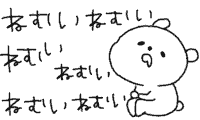 ねむいねむい
ねむい
ねむい
ねむいねむい